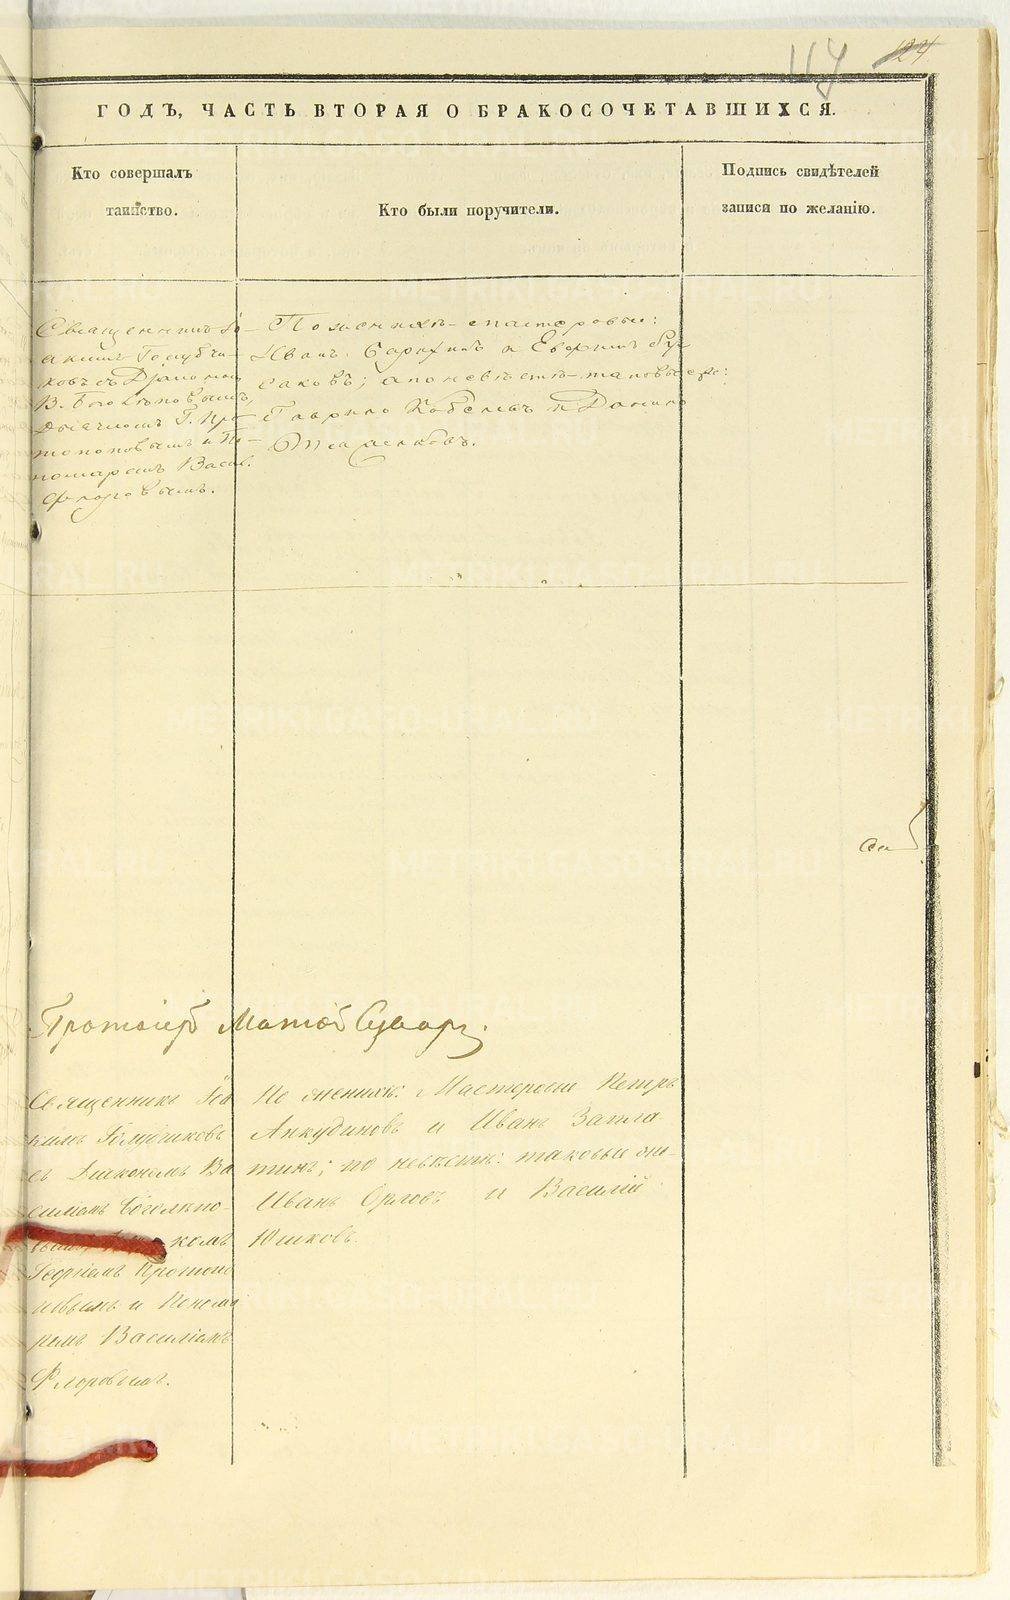 124
ГОДЪ, ЧАСТЬ ВТОРАЯ О БРАКОСОЧЕТАВШИХСЯ.
Кто совершалъ
таинство.
Кто были поручители.
Подпись свидѣтелей
записи по желанію.
Священникъ Іо-
акимъ Голубчи-
ковъ съ Діакономъ
В. Боголѣповымъ,
Дьячкомъ Г. Про-
топоповымъ и По-
номаремъ Васил.
Флоровымъ.
По женихѣ - мастеровые:
Иванъ и Евфимъ
саковъ; а по невѣстѣ - таковые же:
Гаврило Кобелевъ и Данило
Протоіерей
Священникъ Іоа
кимъ Голубчиковъ
съ Діакономъ Ва
силіемъ Боголѣпо-
комъ
Георгіемъ Протопо
повымъ и Понома
ремъ Василіемъ
Флоровымъ.
По женихѣ: Мастеровые Петръ
Анкудиновъ и Иванъ Запла
тинъ; по невѣстѣ: таковые же
Иванъ Орловъ и Василій
Юшковъ.
METRIKI.GASO-URAL.RU